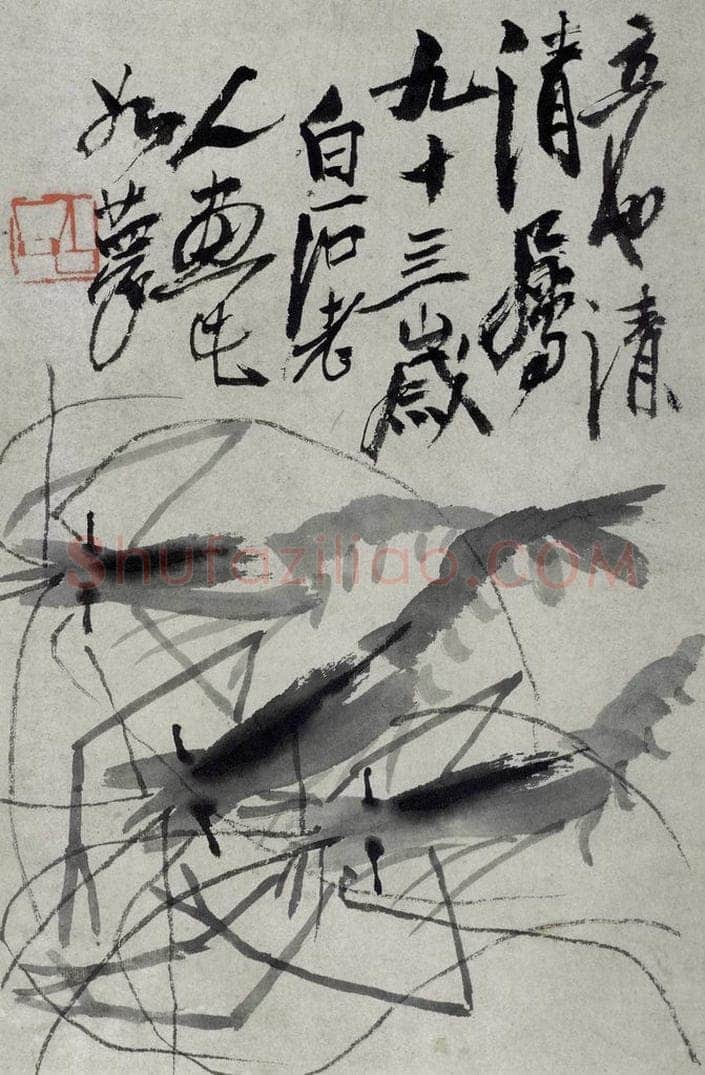 清
清屬
九十三歲
白石老
人畫
如夢
Shufaziliao.COM